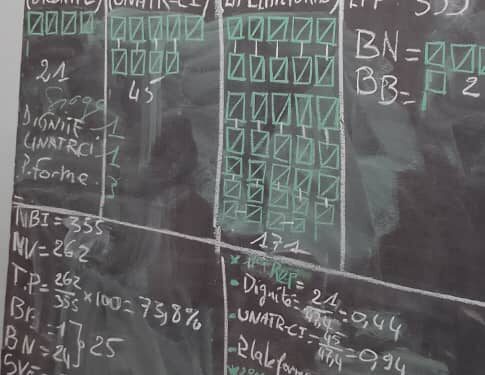 (UNATR-CI)
BN =
BB = 2
21
45
Siège
DIGNITE 1
UNATRCI 1
P.forme. 3
171
NBI = 355
NV = 262
T.P = 262/355 x 100 = 73,8%
= 1
BN = 24 } 25
SV =
REP =
Dignité = 21/47,4 = 0,44
UNATR-CI = 45/47,4 = 0,94
Plateforme